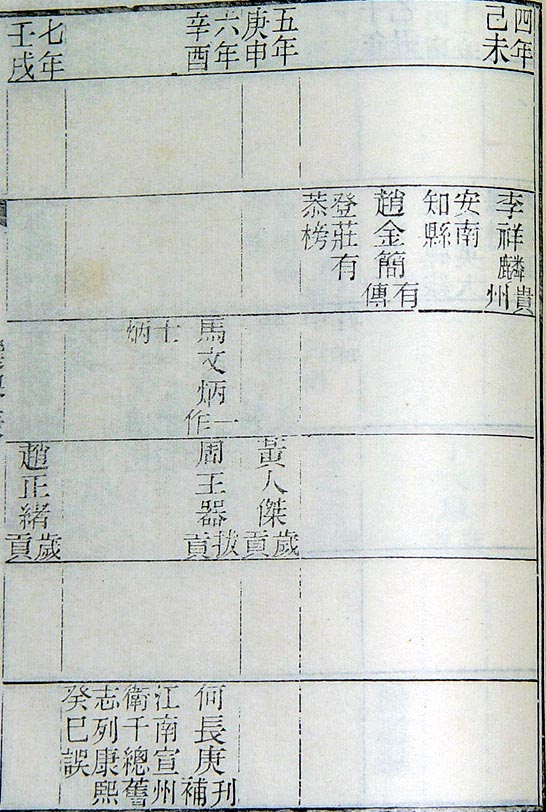 四年
己未
李祥麟貴州
安南
知縣
趙金簡有傳
登莊有
恭榜
五年
庚申
黃人傑歲貢
六年
辛酉
馬文炳一作
士
炳
周王器拔貢
何長庚刊補
江南宣州
衛千總舊
志列康熙
癸巳誤
七年
壬戌
趙正緒歲貢